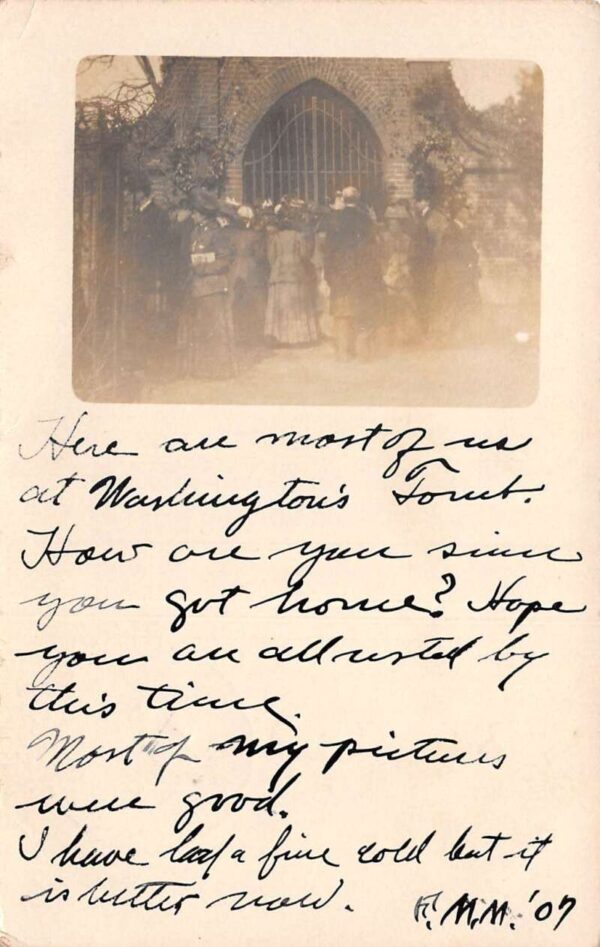 Here are most of us
at Washington's Tomb.
How are you since
you got home? Hope
you are all rested by
this time.
Most of my pictures
were good.
I have had a fine cold but it
is better now. F.M.M. '07